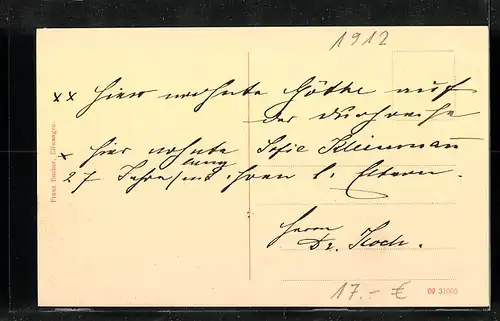 1912
xx Hier wohnte Göthe auf
der Durchreise
x Hier wohnte Sofie Kleinmann
27 Jahre lang mit ihren l. Eltern.
Herrn
Dr. Koch.
17.- €
09 31000
Franz Bucher, Ellwangen.